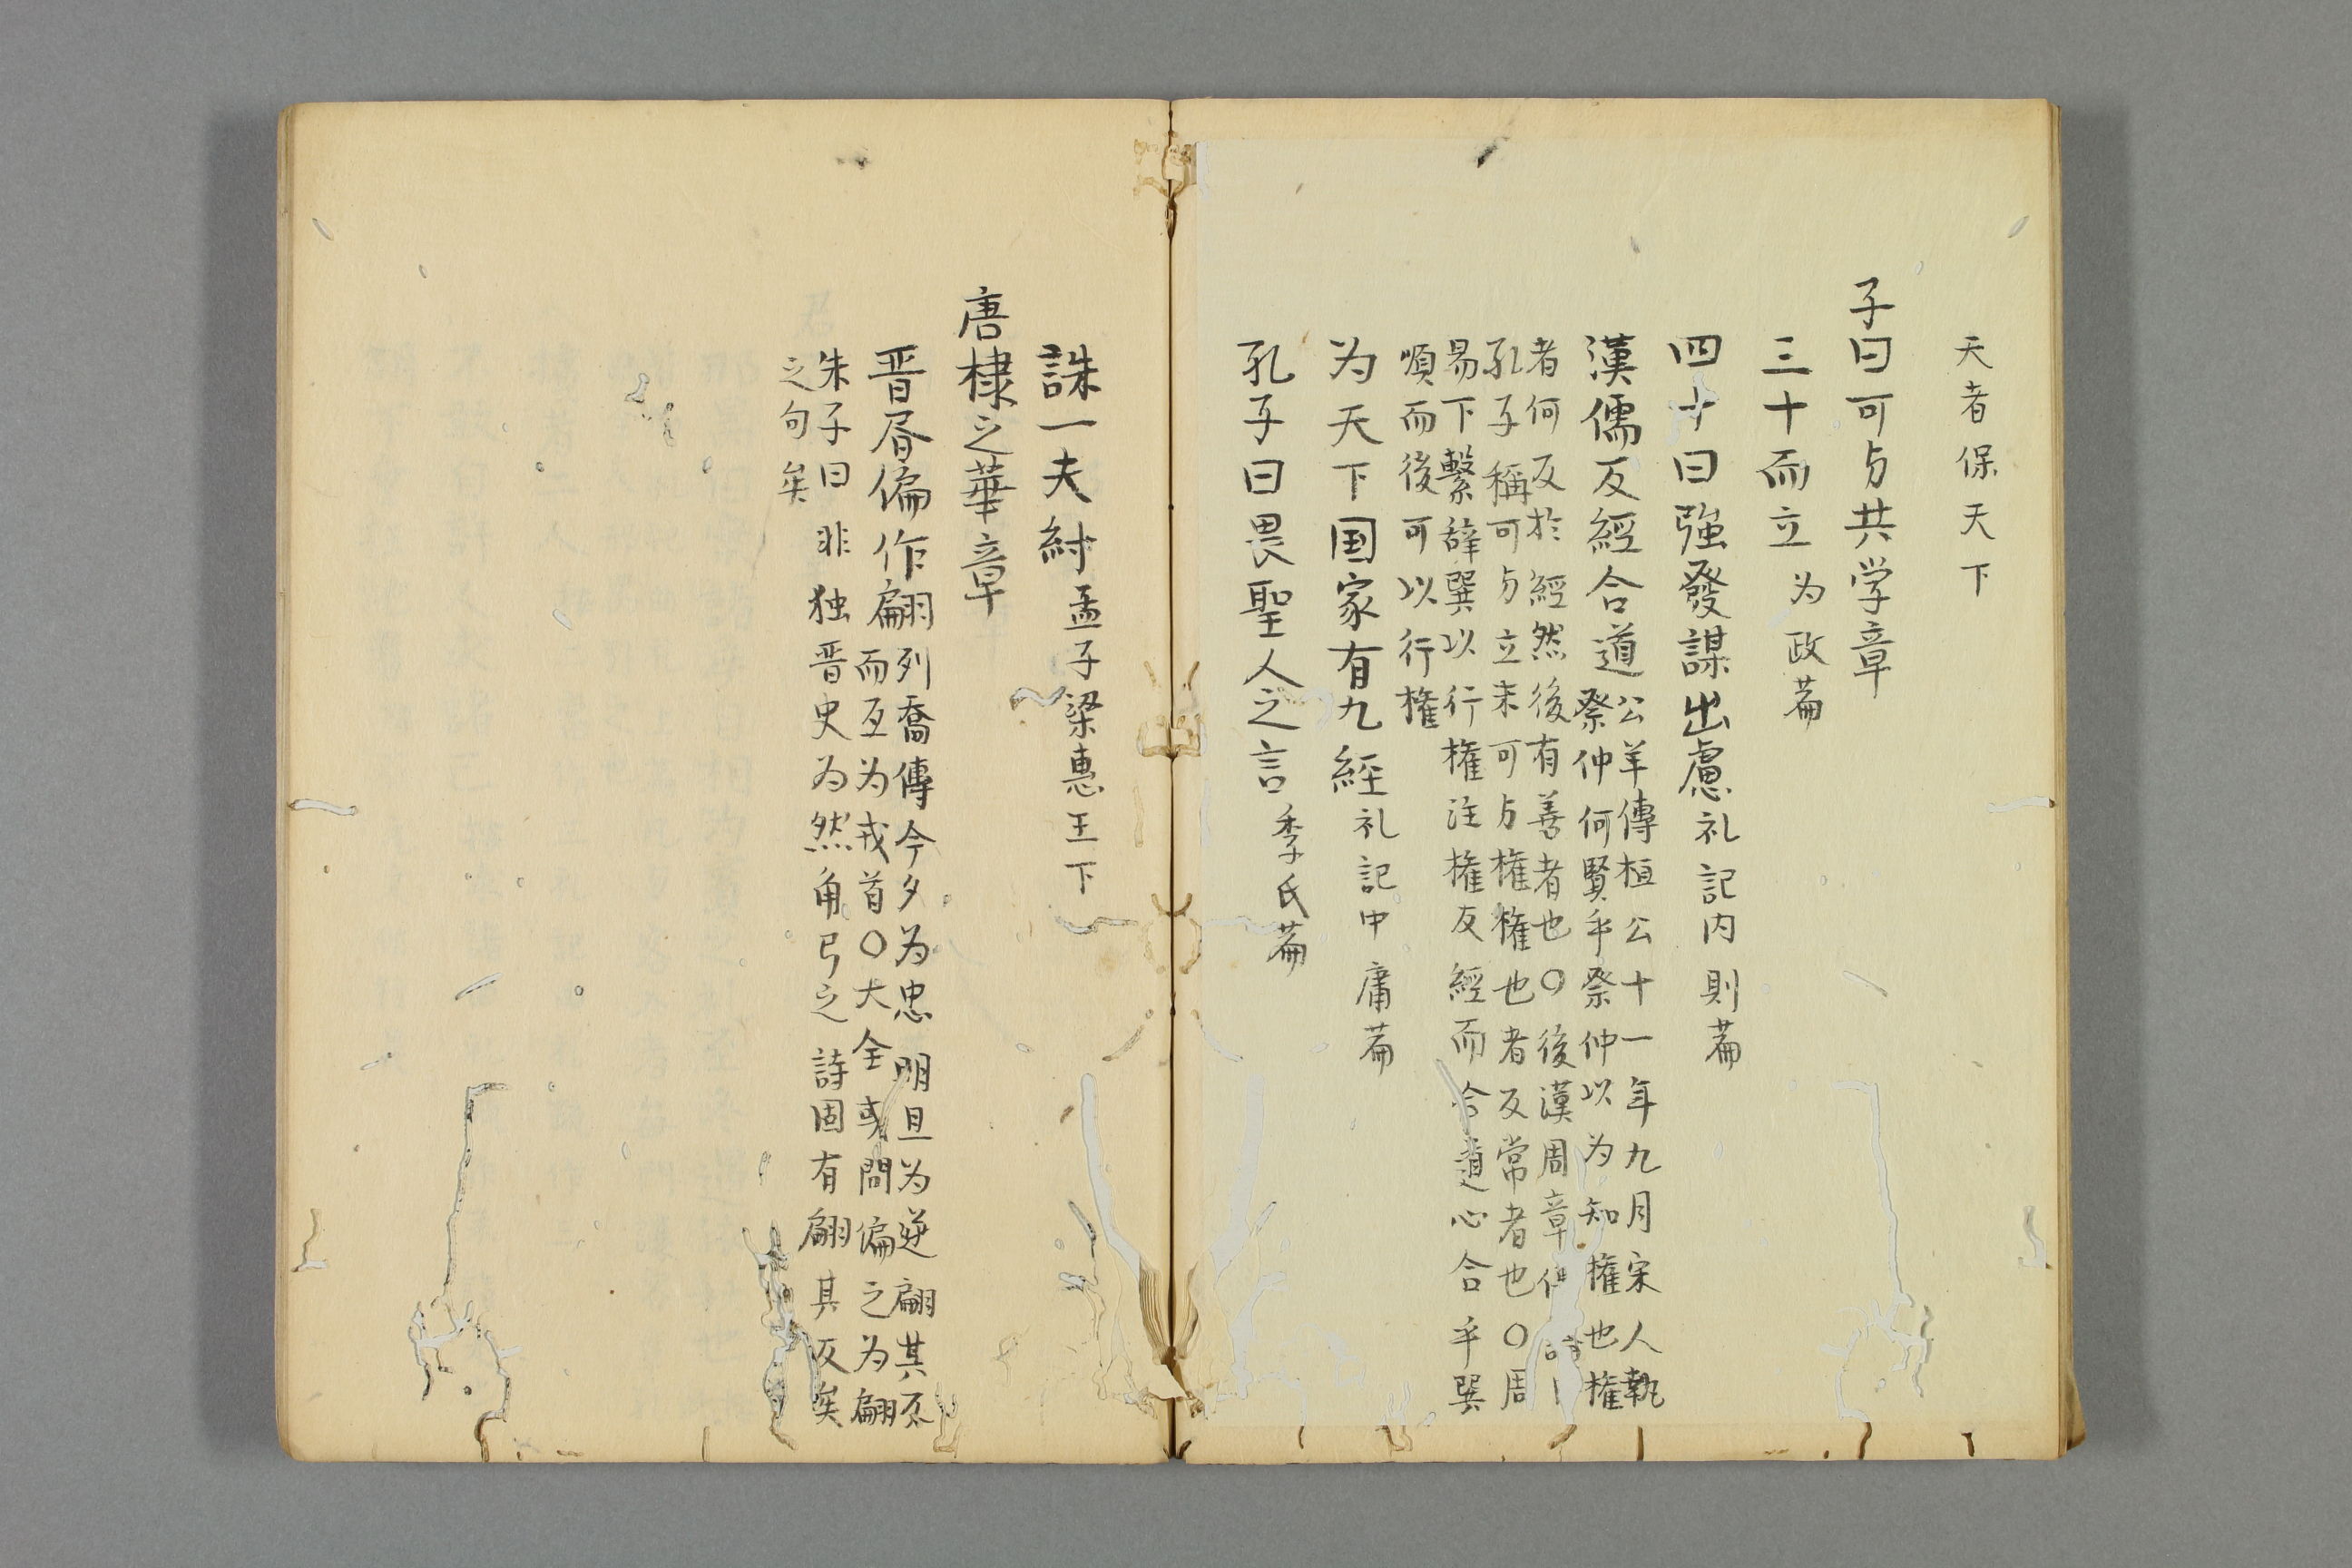 天者保天下
子曰可与共学章
三十而立 为政萹
四十曰強發謀出慮 礼記内則萹
漢儒反経合道 公羊傳桓公十一年九月宋人執
祭仲何賢乎祭仲以为知権也権
者何反於経然後有善者也〇後漢周章
孔子稱可与立未可与権権也者反常者也〇周
易下繫辞巽以行権注権反経而合道心合乎巽
順而後可以行権
为天下国家有九経 礼記中庸萹
孔子曰畏聖人之言 季氏萹
誅一夫紂 孟子梁惠王下
唐棣之華章
晋昬偏作翩 列喬傳今夕为忠明旦为逆翩其不
而互为戎首〇大全或問偏之为翩
朱子曰非独晋史为然角弓之詩固有翩其反矣
之句矣